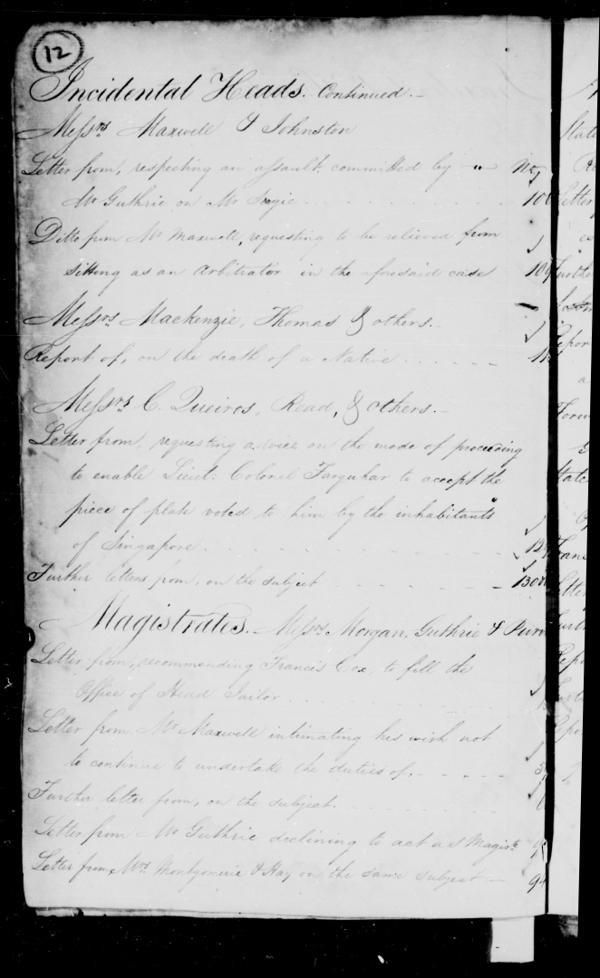 12
Incidental Heads. Continued.–
Messrs Maxwell & Johnston
Letter from, respecting an assault, committed by
Mr Guthrie on Mr
Ditto from Mr Maxwell, requesting to be relieved from
sitting as an Arbitrator in the aforesaid case
Messrs Mackenzie, Thomas & others.–
Report of, on the death of a Native
Messrs C. Queiros, Read, & others.–
Letter from, requesting advice on the mode of proceeding
to enable Lieut: Colonel Farquhar to accept the
piece of plate voted to him by the inhabitants
of Singapore
Further letters from, on the subject
Magistrates. Messrs Morgan, Guthrie &
Letter from, recommending Francis Cox, to fill the
Office of Head
Letter from Mr Maxwell intimating his wish not
to continue to undertake the duties of,
Further letter from, on the subject.
Letter from Mr Guthrie declining to act as Magist:
Letter from Mrs Montgomerie & Hay on the same subject